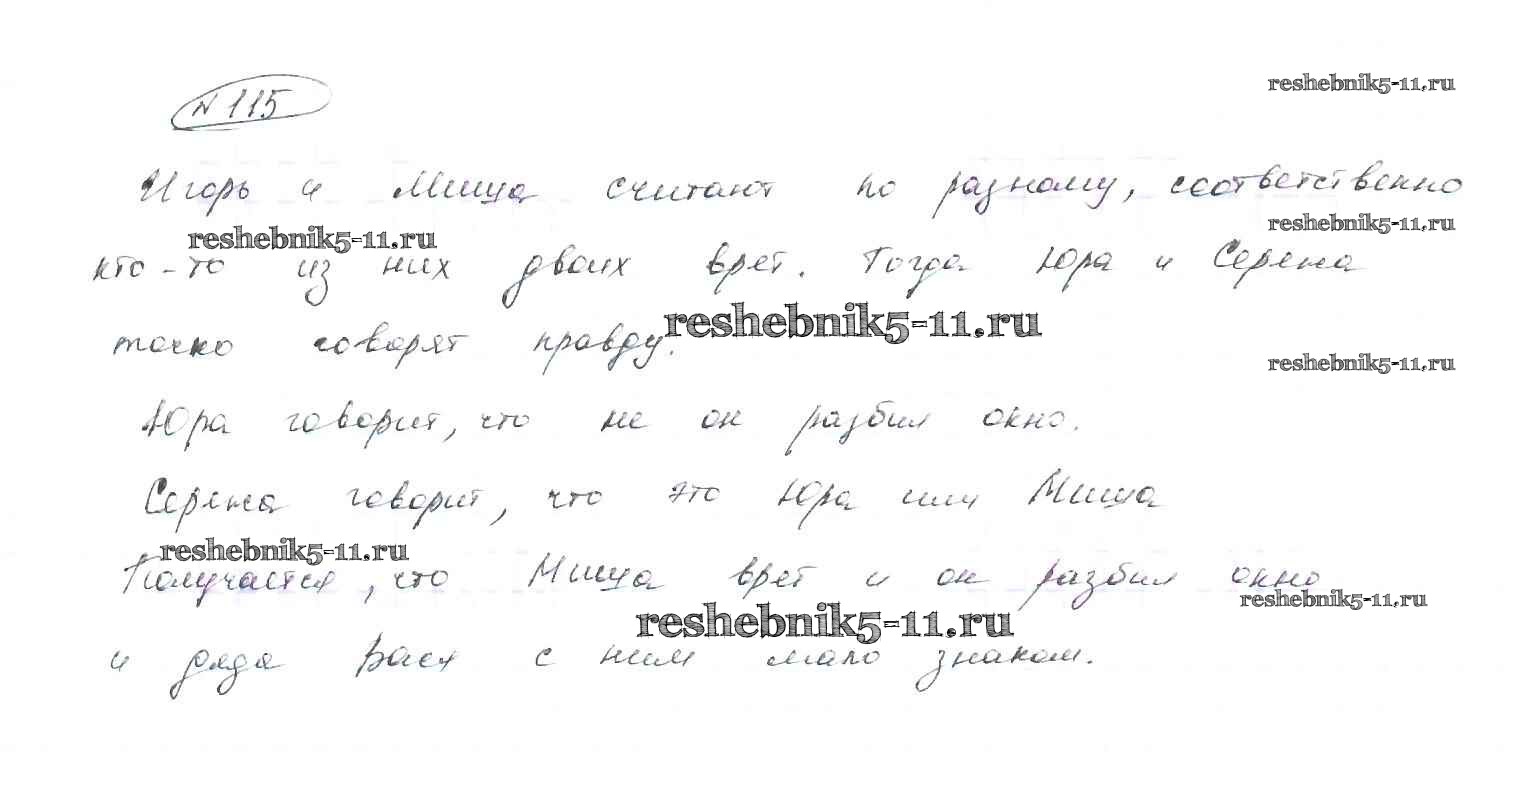 N 115
reshebnik5-11.ru
Игорь и Миша считают по разному, соответственно
reshebnik5-11.ru
reshebnik5-11.ru
кто-то из них двоих врет. Тогда Юра и Сережа
reshebnik5-11.ru
точно говорят правду.
reshebnik5-11.ru
Юра говорит, что не он разбил окно.
Сережа говорит, что это Юра или Миша
reshebnik5-11.ru
Получается, что Миша врет и он разбил окно
reshebnik5-11.ru
reshebnik5-11.ru
и дядя Вася с ним мало знаком.